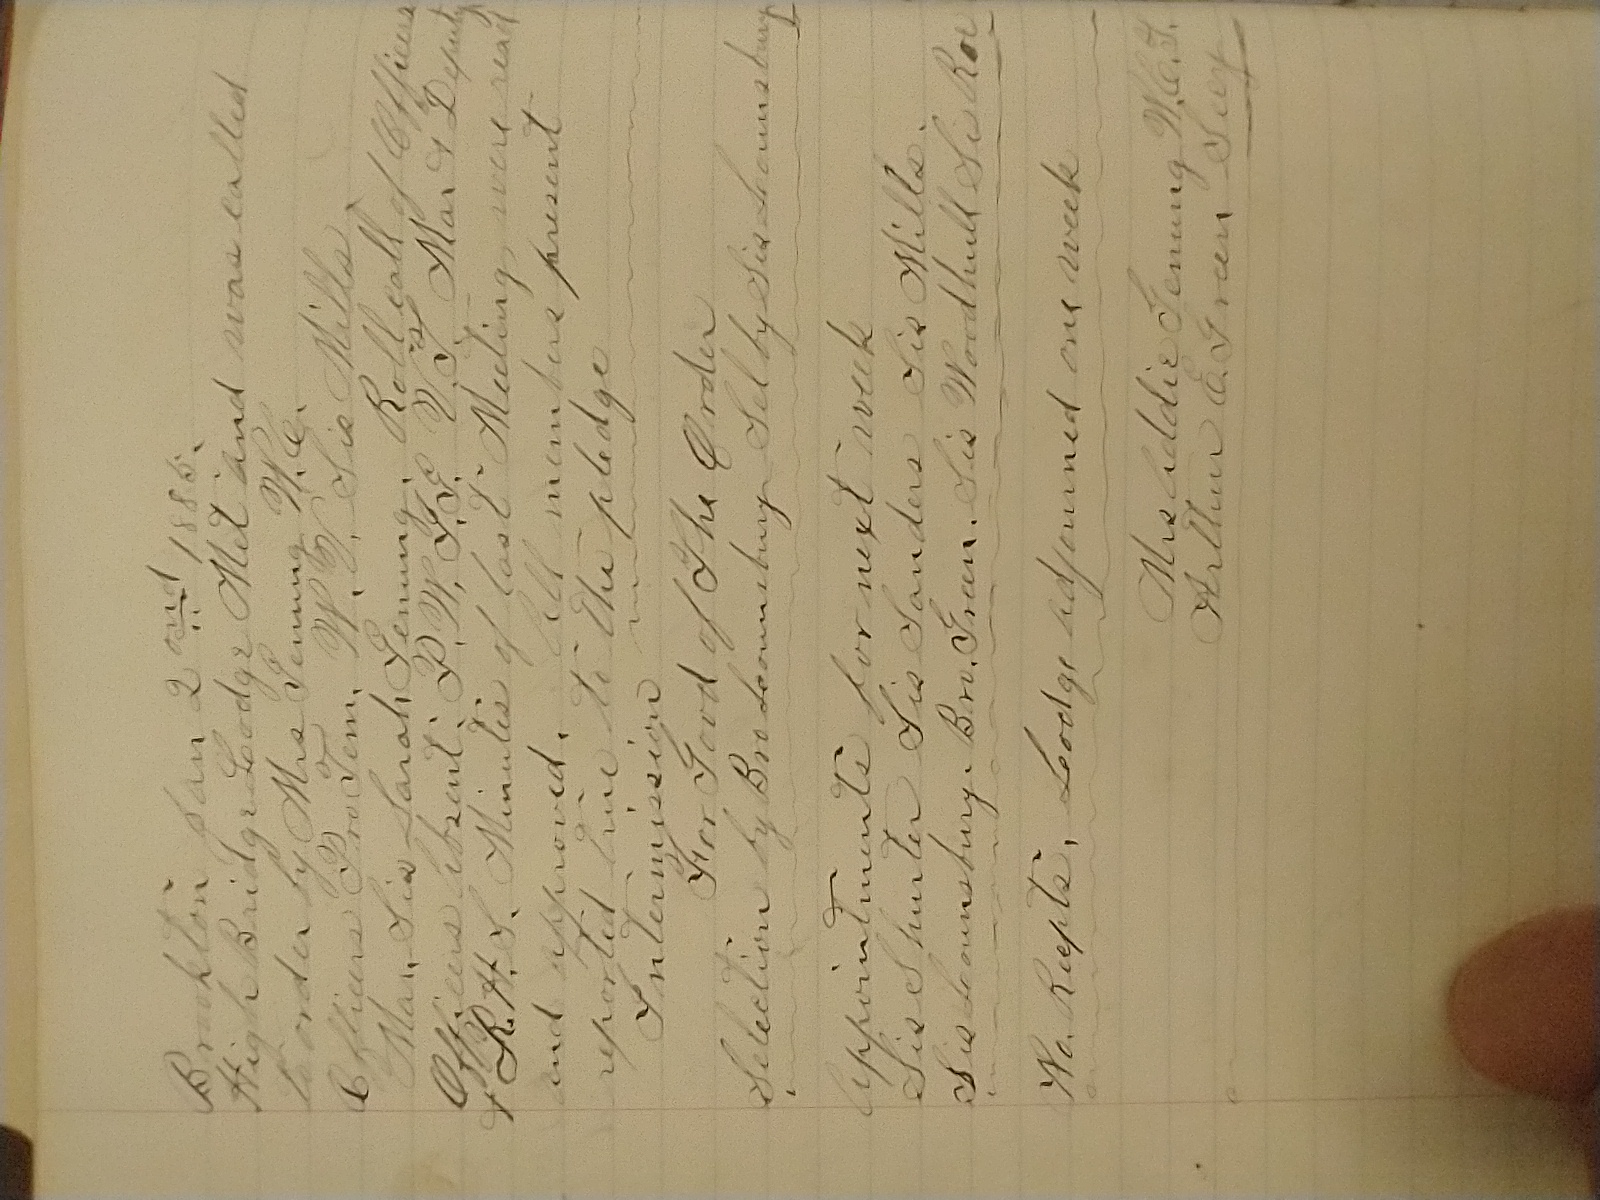 Brookton Jan 2ond 1886.
High Bridge Lodge Met and was called
to order by Mrs Genung W.C.
Officers Pro Tem. W.C. Sis Mills
Mar. Sis Sarah Genung. Roll call of Officers
Officers absent. P.W.C.T. W.T. Mar & Deputy
& R.H.S. Minutes of last Meeting, were read
and approved. All members present
reported true to the pledge
Intermission
For Good of The Order
Selection by Bro Lounsbury Sel by Sis Lounsbury
Appointments for next week
Sis Shurter Sis Sanders Sis Mills.
Sis Lounsbury. Bro. Green. Sis Woodhull Sis Roe
No. Recpts. Lodge adjourned one week
Mrs Addie Genung W.C.T.
Arthur E. Green Secy